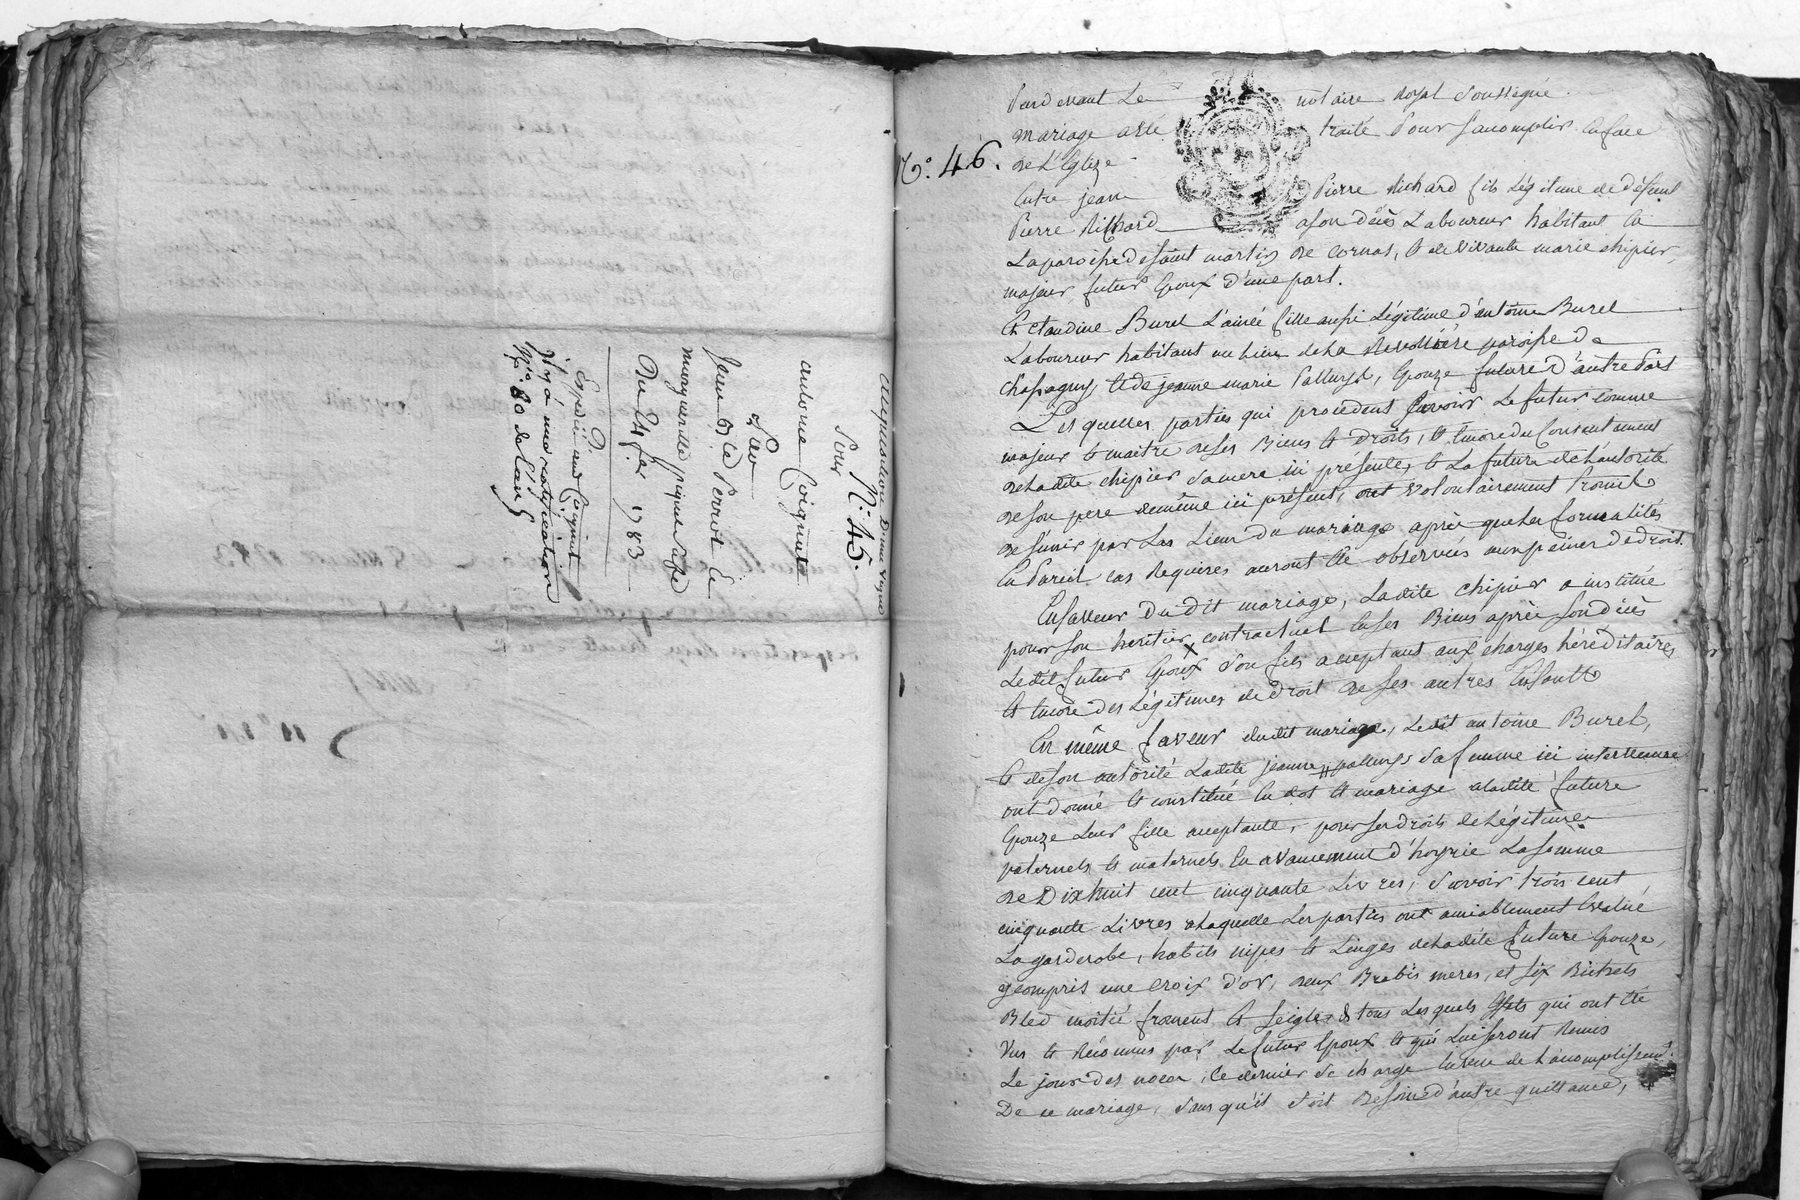 acquisition D'une vigne
N.° 45.
Pour
antoine Coignet
De
Jean B.te Perriot et
marguerite sa femme
Du 24 fev. 1783
Expedié aud Coignet
il y a une ratification
N.° 80 de l'an
N.° 46.
Pardevant Le notaire Royal Soussigné
mariage a été traité Pour S'acomplir en face
de L'Eglize
Entre jean Pierre Richard fils Légitime de défunt
Pierre Richard a son décès Laboureur habitant en
La paroisse de saint martin de Cornas, et de vivante marie chipier,
majeur futur Epoux d'une part.
Et claudine Burel L'ainée fille aussi Légitime d'antoine Burel
Laboureur habitant au Lieu de La paroisse de
Chassagny, et de jeanne marie , Epouze future d'autre Part
Les quelles parties qui procedent Savoir Le futur comme
majeur et maitre de ses Biens et droits, et encore du Consentement
de Ladite chipier Sa mere ici présente, et La future de L'autorité
de son pere de même ici présent, ont volontairement Promis
de S'unir par Les Liens du mariage après que Les formalités
En Pareil cas Requises auront Eté observées aux peines de droit.
En faveur Du dit mariage, Ladite chipier a institué
pour son heritier contractuel En ses Biens après son décès
Ledit futur Epoux Son fils acceptant aux charges héréditaires
et encore des Légitimes de droit de ses autres Enfants
En même faveur dudit mariage, Ledit antoine Burel,
et de son autorité Ladite jeanne Sa femme ici intervenue
ont donné et constitué En dot et mariage a Ladite future
Epouze Leur fille acceptante, pour ses droits de Légitime
paternels et maternels En avancement d'hoyrie La somme
de Dix huit cent cinquante Livres, Savoir trois cent
cinquante Livres a Laquelle Les parties ont amiablement Evalué
La garderobe, habits nipes et Linges de Ladite future Epouze,
y compris une croix d'or, deux Brebis meres, et six Bichets
Bled moitié froment et seigle & tous Les quels Effets qui ont Eté
Vus et Reconnus par Le futur Epoux et qui Lui seront Remis
Le jour des noces, Ce dernier Se charge En vertu de L'acomplissem.t
De ce mariage, Sans qu'il Soit Besoin d'autre quittance,